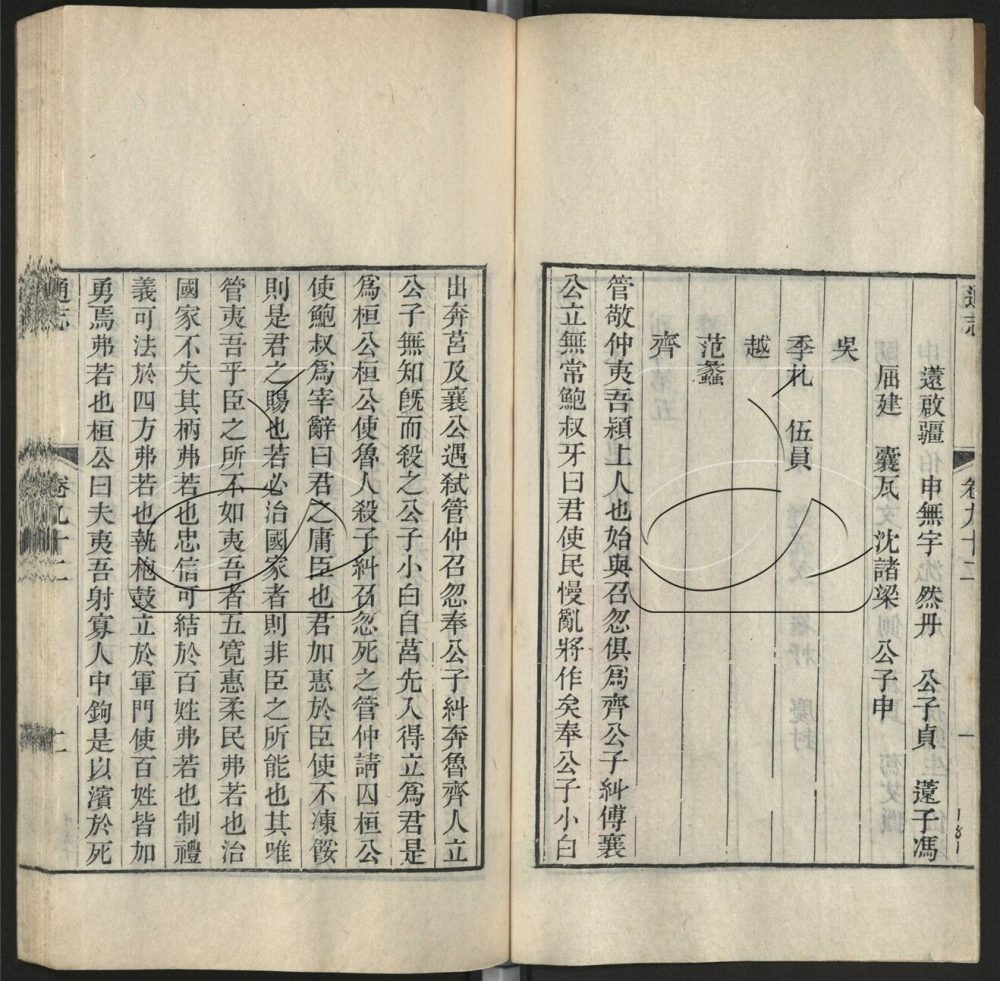 通志
卷九十二
一
薳啟疆 申無宇 然丹 公子貞 薳子馮
屈建 囊瓦 沈諸梁 公子申
吳
季札 伍員
越
范蠡
齊
管敬仲夷吾潁上人也始與召忽俱爲齊公子糾傅襄
公立無常鮑叔牙曰君使民慢亂將作矣奉公子小白
出奔莒及襄公遇弑管仲召忽奉公子糾奔魯齊人立
公子無知旣而殺之公子小白自莒先入得立爲君是
爲桓公桓公使魯人殺子糾召忽死之管仲請囚桓公
使鮑叔爲宰辭曰君之庸臣也君加惠於臣使不凍餒
則是君之賜也若必治國家者則非臣之所能也其唯
管夷吾乎臣之所不如夷吾者五寬惠柔民弗若也治
國家不失其柄弗若也忠信可結於百姓弗若也制禮
義可法於四方弗若也執枹鼓立於軍門使百姓皆加
勇焉弗若也桓公曰夫夷吾射寡人中鉤是以濱於死
通志
卷九十二
二